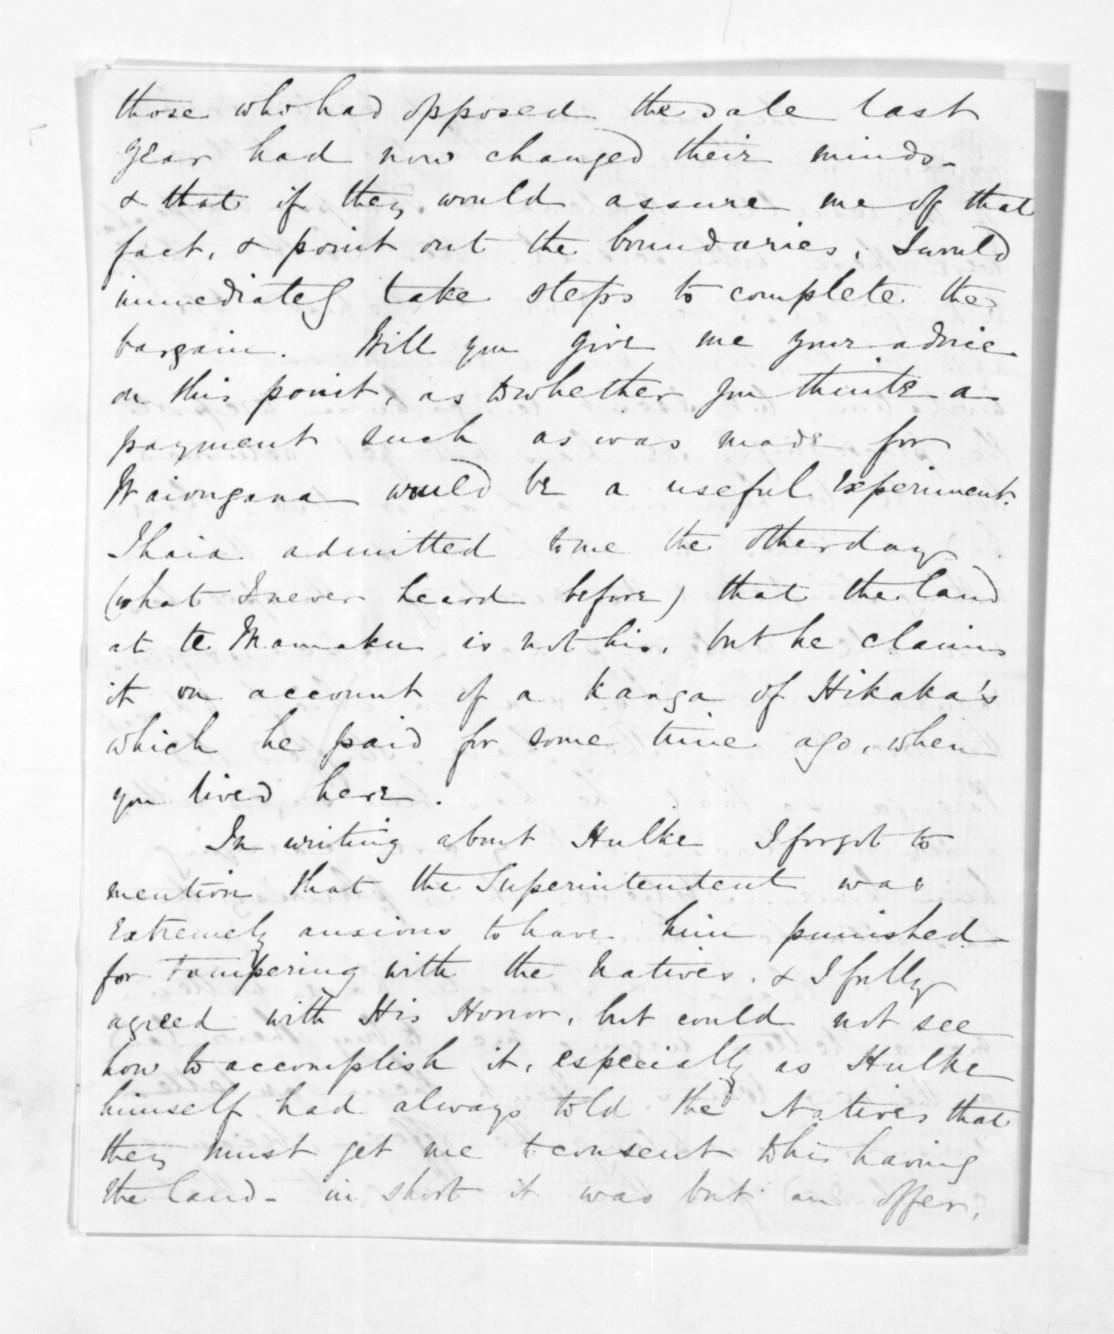 those who had opposed the sale last
year had now changed their minds -
& that if they would assure me of that
fact, & point out the boundaries, I would
immediately take steps to complete the
bargain. Will you give me your advice
on this point, as to whether you think a
payment such as was made for
Waiongana would be a useful experiment.
Ihaia admitted to me the other day
(what I never heard before) that the land
at te Mamaku is not his, but he claims
it on account of a kanga of Hikaka's
which he paid for some time ago, when
you lived here.
In writing about Hulke I forgot to
mention that the Superintendent was
extremely anxious to have him punished
for tampering with the Natives. & I fully
agreed with His Honor, but could not see
how to accomplish it, especially as Hulke
himself had always told the Natives that
they must get me to consent to his having
the land - in short it was but an offer,